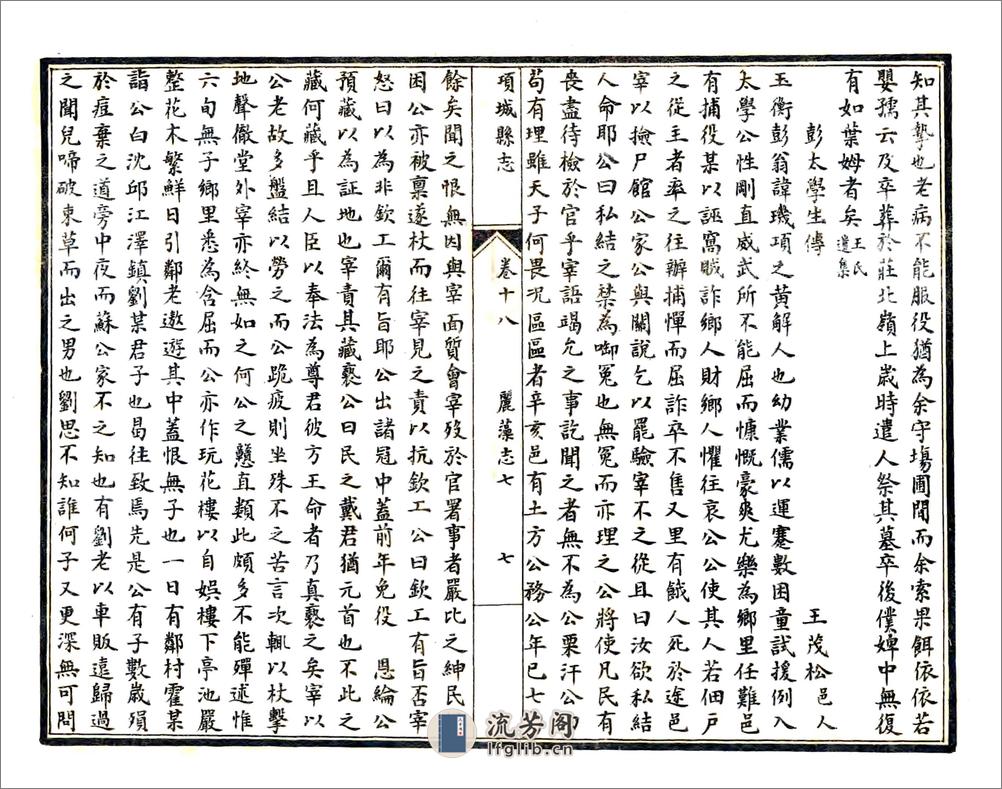 知其摯也老病不能服役猶為余守塲圃間而余索果餌依依若
嬰孺云及卒葬於莊北嶺上歲時遣人祭其墓卒後僕婢中無復
有如葉姆者矣王氏遺集
彭太學生傳
王茂松邑人
玉衡彭翁諱璣項之黃解人也幼業儒以運蹇數困童試援例入
太學公性剛直威武所不能屈而慷慨豪爽尤樂為鄉里任難邑
有捕役某以誣窩賊詐鄉人財鄉人懼往哀公公使其人若佃戶
之從主者率之往辦捕憚而屈詐卒不售又里有餓人死於途邑
宰以撿尸館公家公與關說乞以罷驗宰不之從且曰汝欲私結
人命耶公曰私結之禁為啣冤也無冤而亦理之公將使凡民有
喪盡待檢於官乎宰語竭允之事訖聞之者無不為公栗汗公卽
苟有理雖天子何畏況區區者辛亥邑有土方公務公年已七
項城縣志
卷十八
麗藻志七
七
餘矣聞之恨無因與宰面質會宰歿於官署事者嚴比之紳民
困公亦被稟遂杖而往宰見之責以抗欽工公曰欽工有旨否宰
怒曰以為非欽工爾有旨耶公出諸冠中蓋前年免役 恩綸公
預藏以為証地也宰責其藏褻公曰民之戴君猶元首也不此之
藏何藏乎且人臣以奉法為尊君彼方王命者乃真褻之矣宰以
公老故多盤結以勞之而公跪疲則坐殊不之苦言次輒以杖擊
地聲徹堂外宰亦終無如之何公之戇直類此頗多不能殫述惟
六旬無子鄉里悉為含屈而公亦作玩花樓以自娛樓下亭池嚴
整花木繁鮮日引鄰老遨遊其中蓋恨無子也一日有鄰村霍某
詣公白沈邱江澤鎮劉某君子也曷往致焉先是公有子數歲殞
於痘棄之道旁中夜而蘇公家不之知也有劉老以車販遠歸過
之聞兒啼破束草而出之男也劉思不知誰何子又更深無可問
流芳阁
lfglib.cn